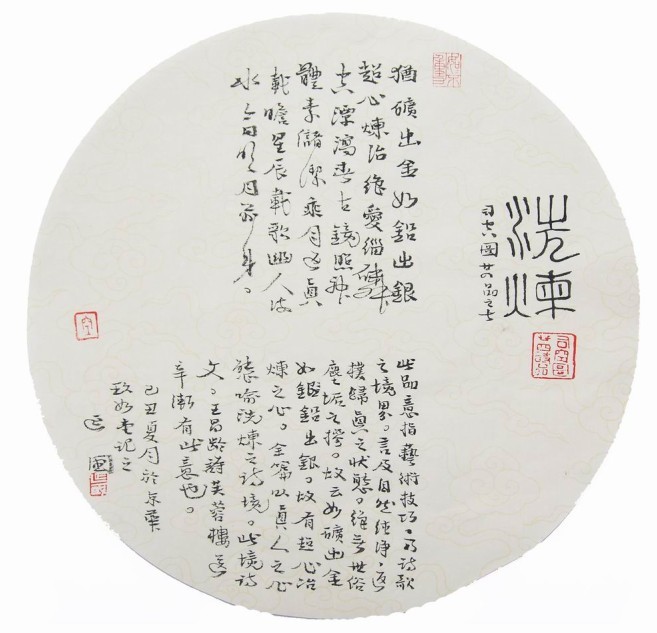 洗煉
司空圖廿品之七
猶礦出金如鉛出銀
超心煉冶絕愛緇磷
空潭瀉春古鏡照神
體素儲潔乘月返真
載瞻星辰載歌幽人流
水今日明月前身。
此品意指藝術技巧，乃詩歌
之境界。言及自然純淨，返
樸歸真之狀態。絕無世俗
塵垢之擾。故云如礦出金
如鑑鉛出銀。故有超心冶
煉之心。全篇以真人之心
態喻洗煉之詩境。此境詩
文，王昌齡詩芙蓉樓送
辛漸有此意也。
己丑夏月於京華
記之